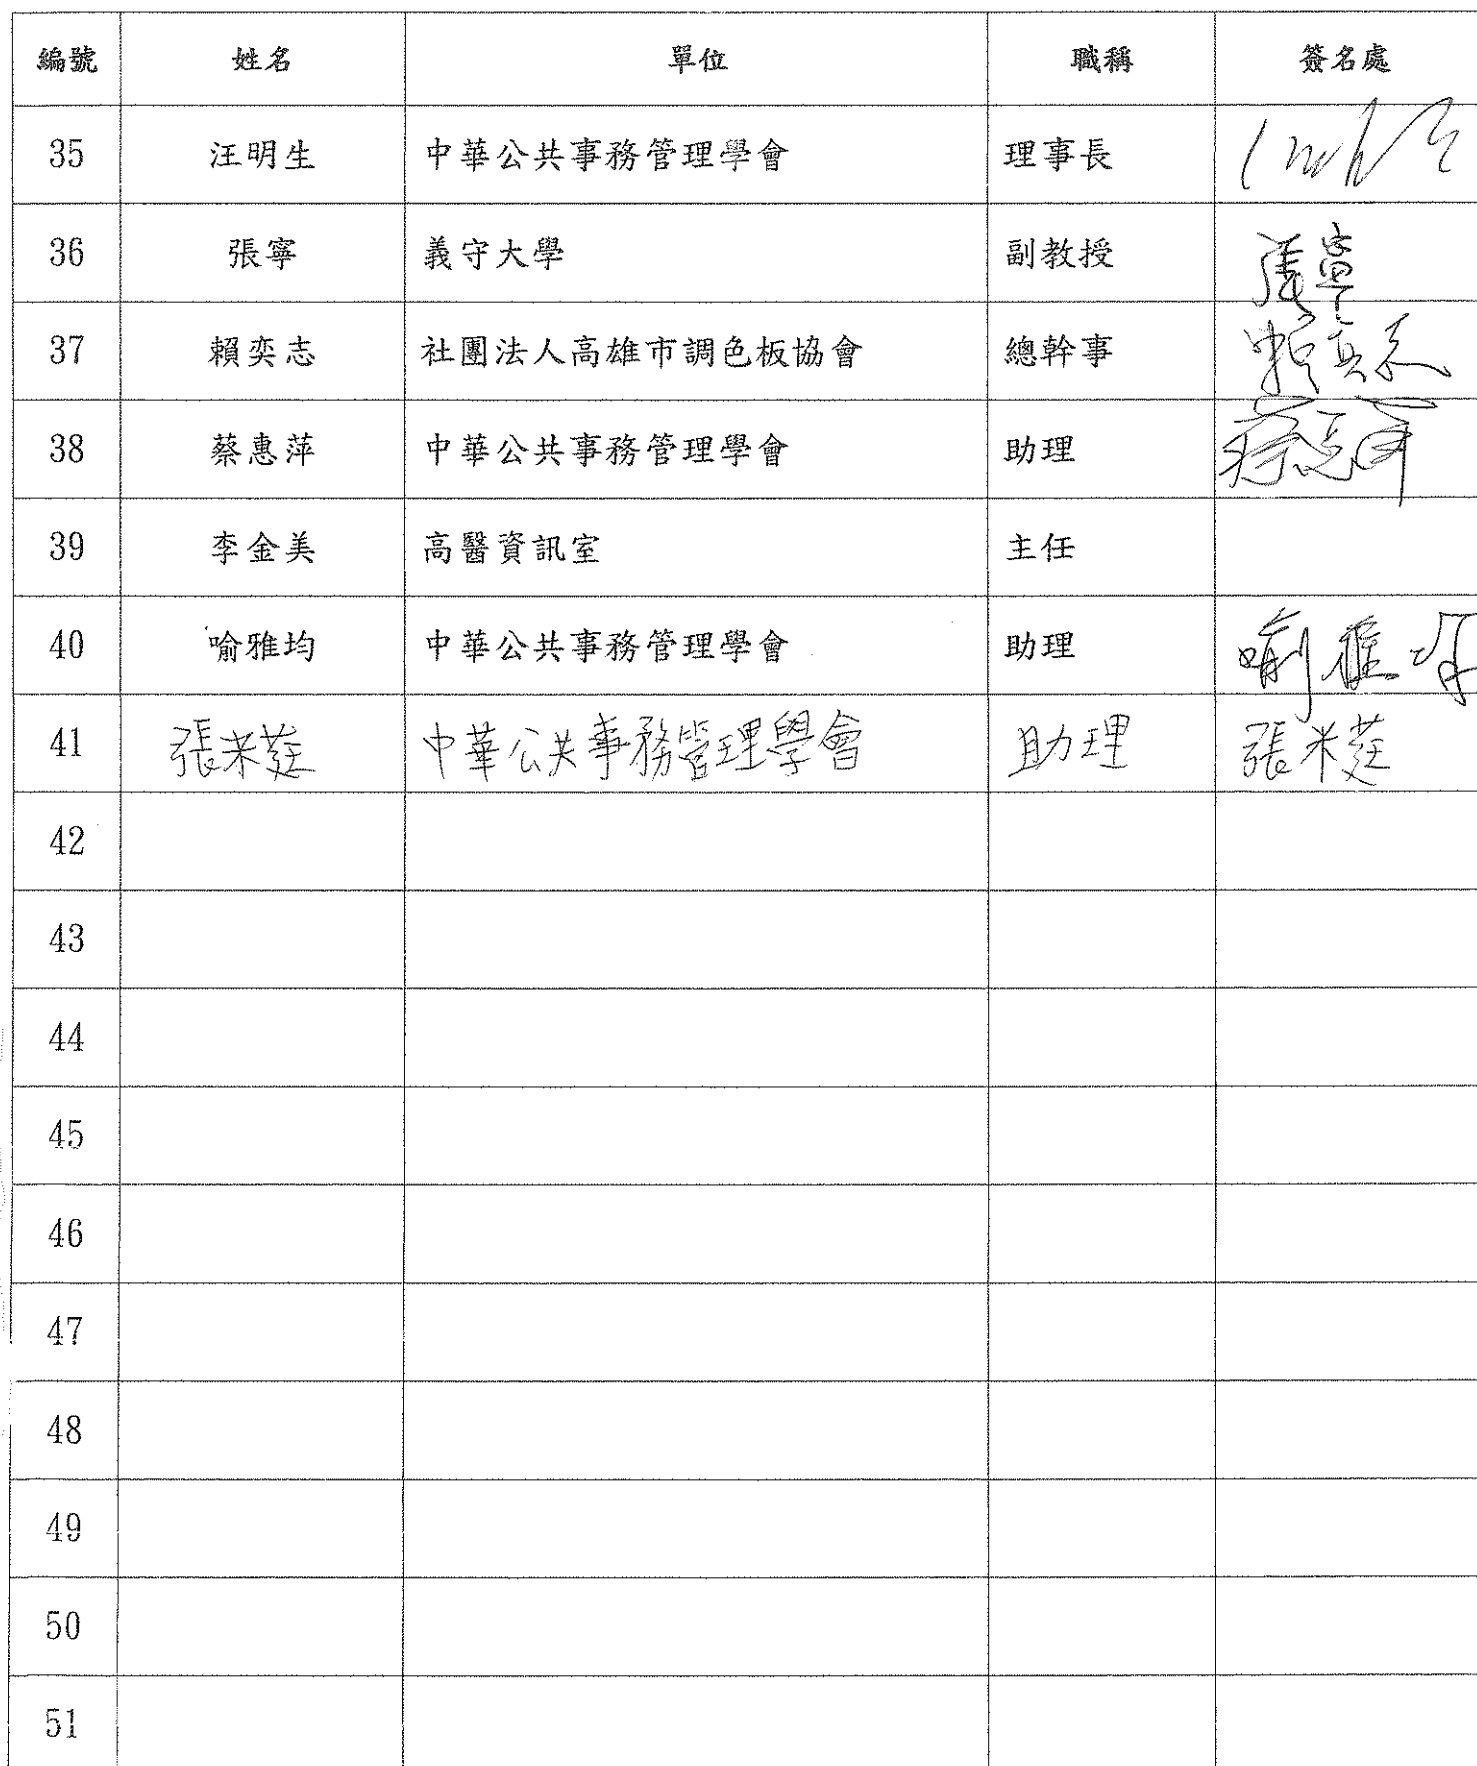 編號 姓名 單位 職稱 簽名處
35 汪明生 中華公共事務管理學會 理事長
36 張寧 義守大學 副教授 張寧
37 賴奕志 社團法人高雄市調色板協會 總幹事 賴奕志
38 蔡惠萍 中華公共事務管理學會 助理 蔡惠萍
39 李金美 高醫資訊室 主任
40 喻雅均 中華公共事務管理學會 助理 喻雅均
41 張米莛 中華公共事務管理學會 助理 張米莛
42
43
44
45
46
47
48
49
50
51